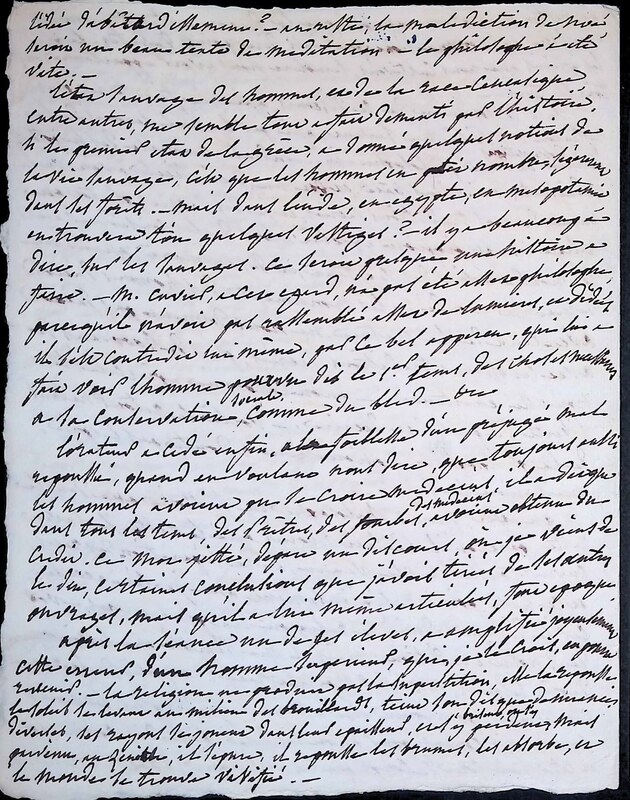 l'idée d'abâtardissement ? — en vérité, la malédiction de Noé
seroit un beau texte de méditation — le philosophe a été
vite. —
l'état sauvage des hommes, et de la race
entre autres, me semble tout à fait démenti par l'histoire,
si les premiers états de la grèce, a donné quelques notions de
la vie sauvage, c'est que les hommes en petit nombre,
dans les forêts. — mais dans l'inde, en égypte, en mésopotamie
en trouvera t'on quelques vestiges ? — il y a beaucoup à
dire, sur les sauvages. ce seroit presque une histoire à
faire. — M. à cet égard, n'a pas été assez philosophe,
parcequ'il n'avoit pas rassemblé assez de lumières, et
il s'est contredit lui même, par ce bel apperçu, qui lui a
fait voir l'homme pourvu dès le 1er tems, des choses
à la conservation sociale, comme du bled. —
l'orateur a cédé enfin, à la foiblesse d'un préjugé mal
repoussé, quand en voulant nous dire, que toujours
les hommes avoient pu se croire médecins, il a dit que
dans tous les tems, des Prêtres, des fourbes, des médecins, avoient obtenu du
crédit. ce mot jetté, dépare un discours, où je viens de
le dire, certaines conclusions que j'avois tirées de ses autres
ouvrages, mais qu'il a lui même articulées, font époque
après la séance un de ses élèves, a amplifié joyeusement
cette erreur, d'un homme supérieur, qui, je le crois, en pourra
revenir. — la religion ne produit pas la superstition, elle la repousse
le soleil se levant au milieu des brouillards, teint son disque de nuances
diverses, ses rayons se jouent dans leur épaisseur, et s'y perdent, mais
parvenu, au zénith, il épure, il repousse les brumes, les absorbe, et
le monde se trouve vivifié. —